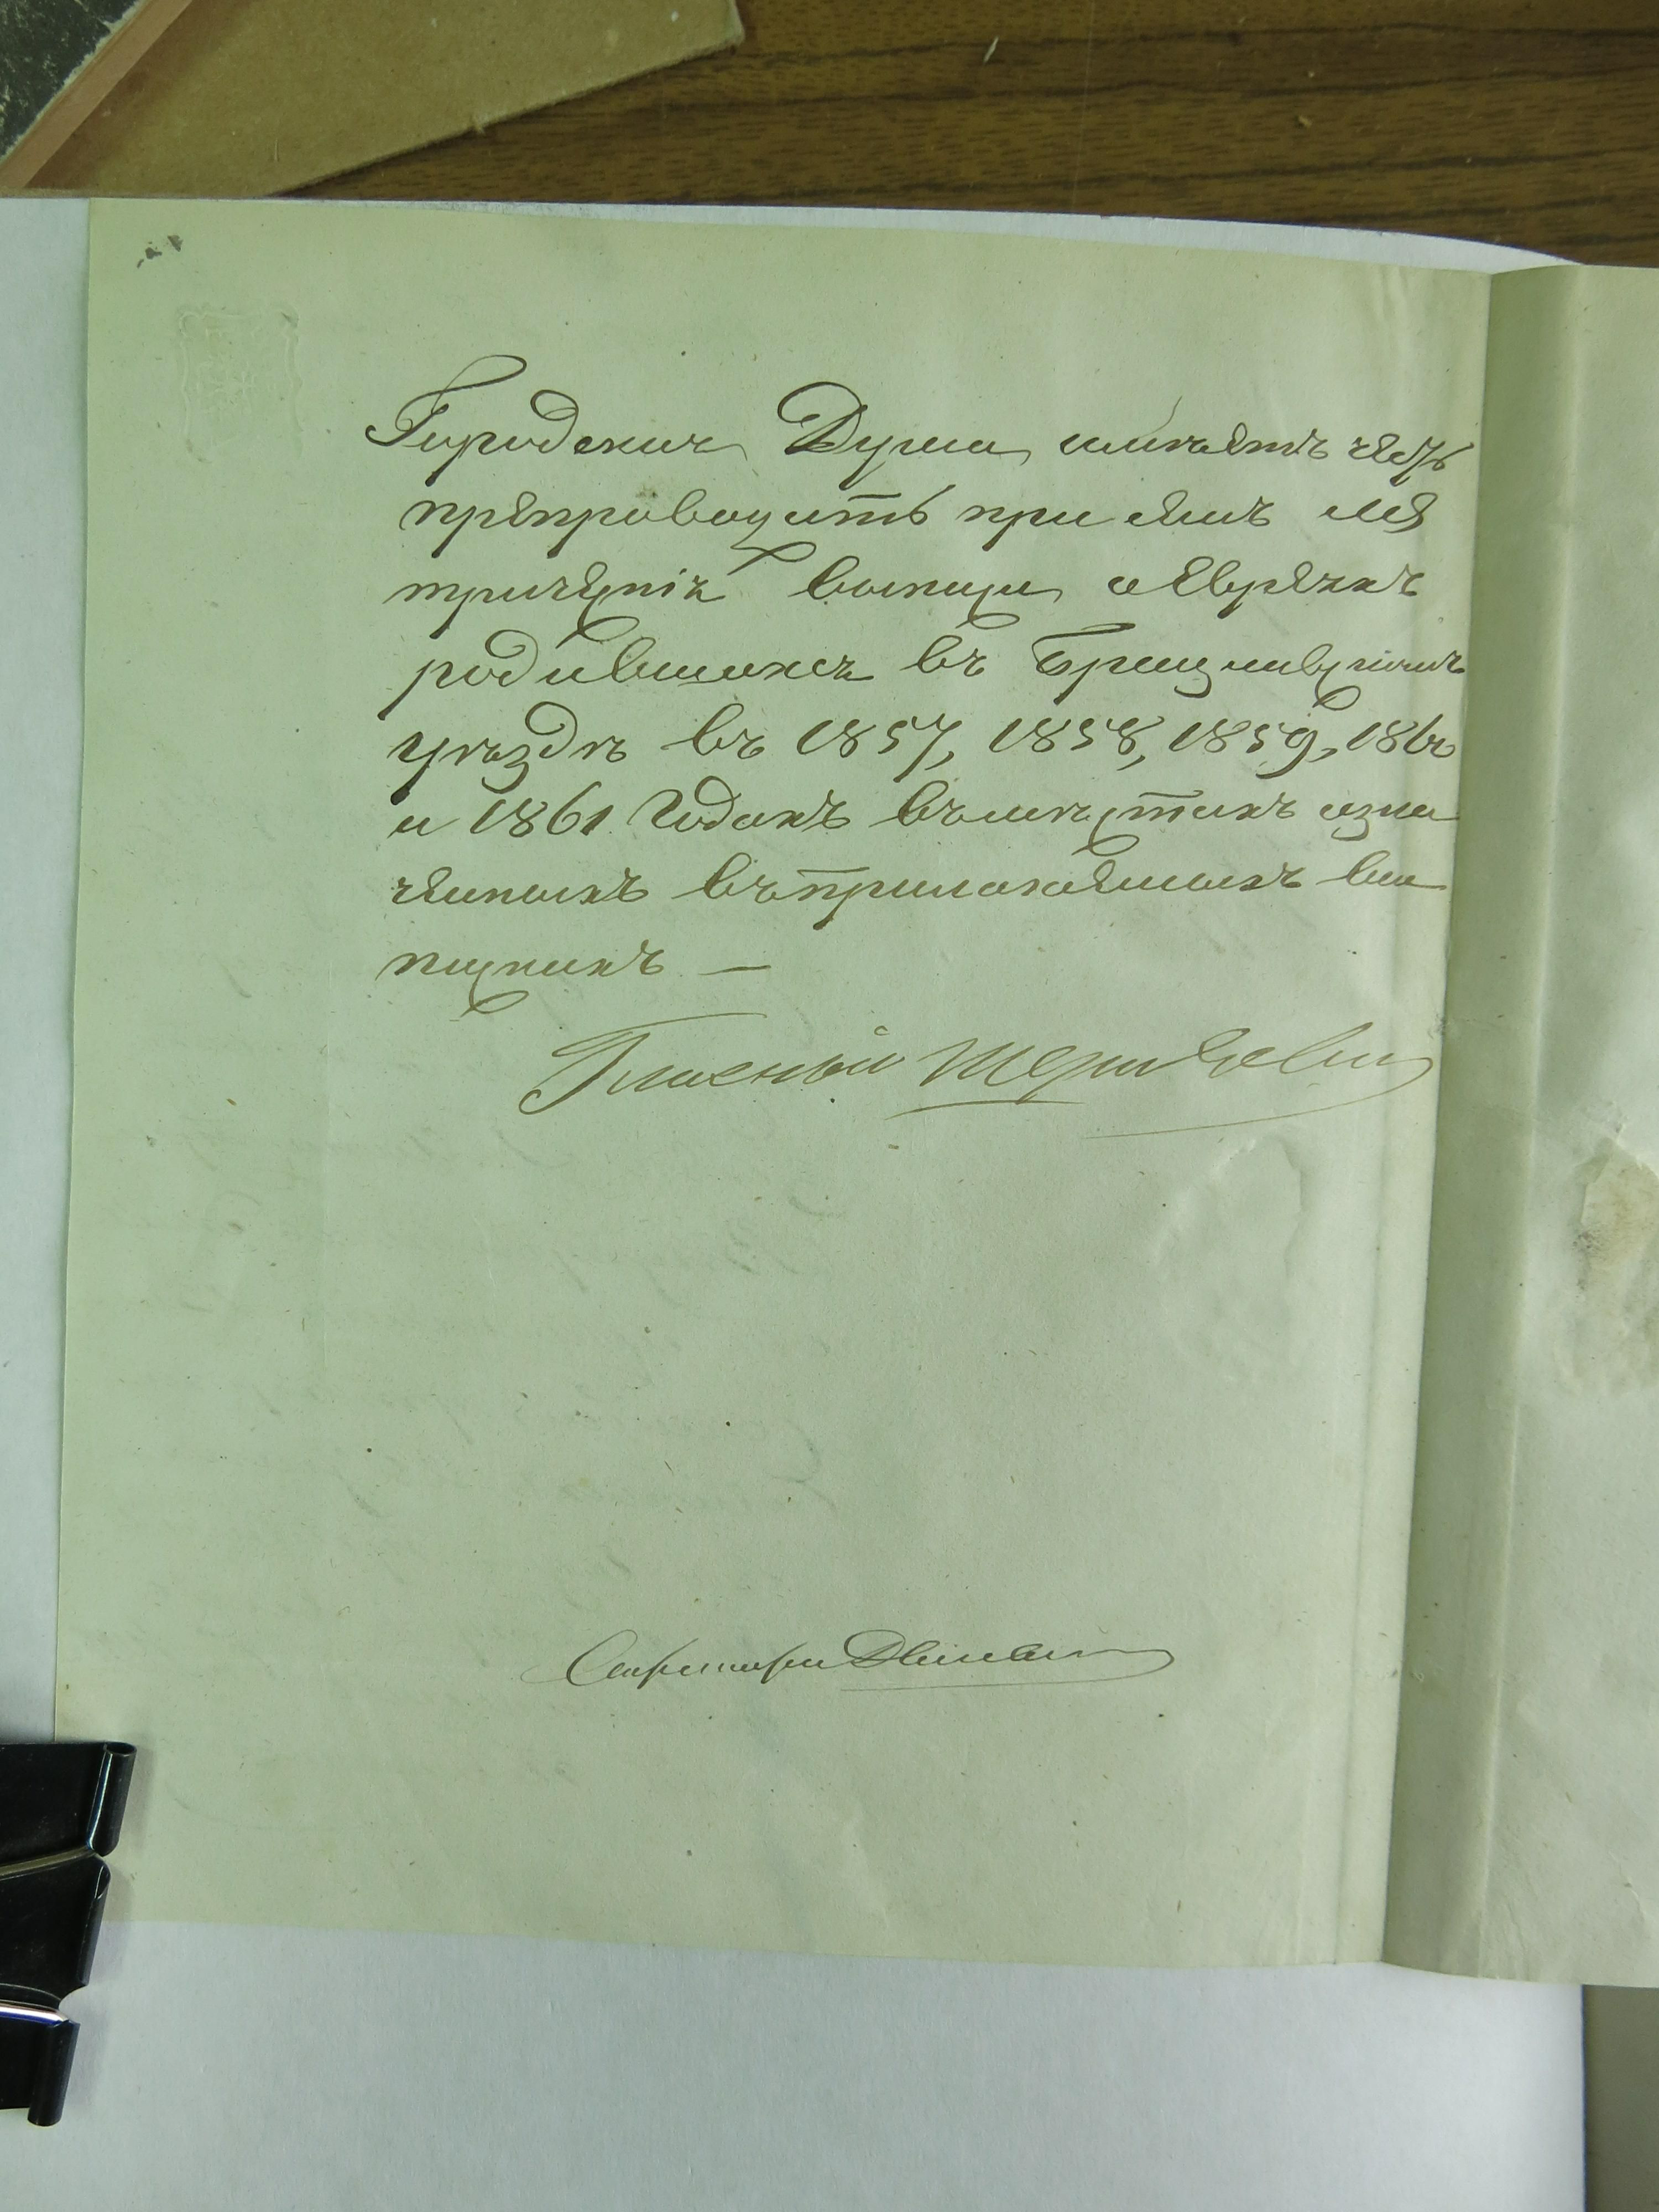 Городская Дума имѣетъ честь
препроводить при семъ ме
трическія выписи о Евреяхъ
родившихся въ
уѣздѣ въ 1857, 1858, 1859, 1860
и 1861 годахъ въ мѣстахъ озна
ченныхъ въ прилагаемыхъ вы
пискахъ —
Гласный
Секретарь